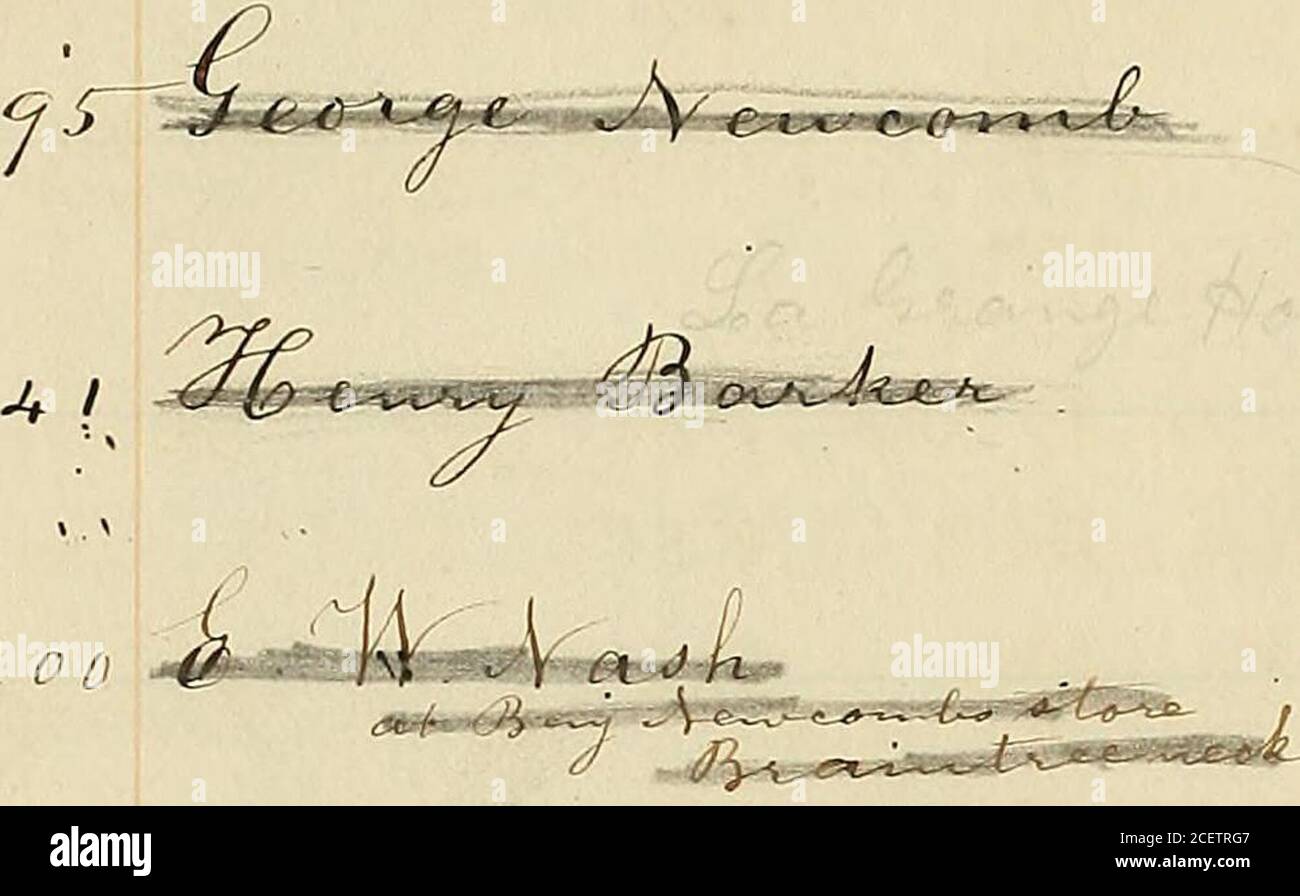 95 George Newcomb
La Grange Ho
41 Henry Barker
00 E. W. Nash
at Benj Newcombs store
Braintree neck
alamy
Image ID: 2CETRG7
www.alamy.com